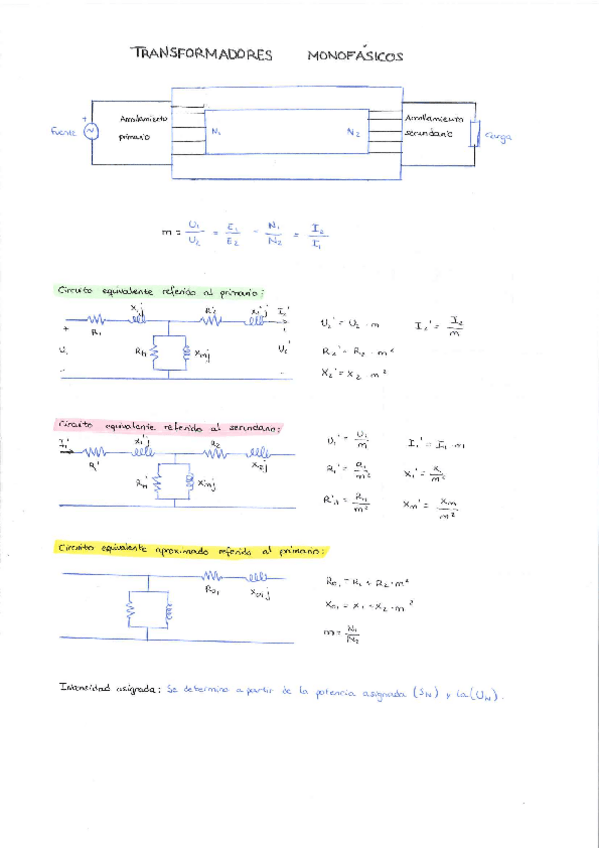 TRANSFORMADORES MONOFÁSICOS
Arrollamiento primario
Arrollamiento secundario
Fuente
+
N₁
N₂
Carga
m = U₁/U₂ = E₁/E₂ = N₁/N₂ = I₂/I₁
Circuito equivalente referido al primario:
R₁
X₁j
R₂'
X₂'j
I₂'
+
U₁
Xmj
U₂' = U₂ · m
I₂' = I₂/m
R₂' = R₂ · m²
X₂' = X₂ · m²
Circuito equivalente referido al secundario:
I₁'
R'
X₁'j
R₂
X₂j
Xm'j
U₁' = U₁/m
I₁' = I₁ · m
R₁' = R₁/m²
X₁' = X₁/m²
Xm' = Xm/m²
Circuito equivalente aproximado referido al primario:
R01
X01j
R01 = R₁ + R₂ · m²
X01 = X₁ + X₂ · m²
m = N₁/N₂
Intensidad asignada: Se determina a partir de la potencia asignada (SN) y la (UN).